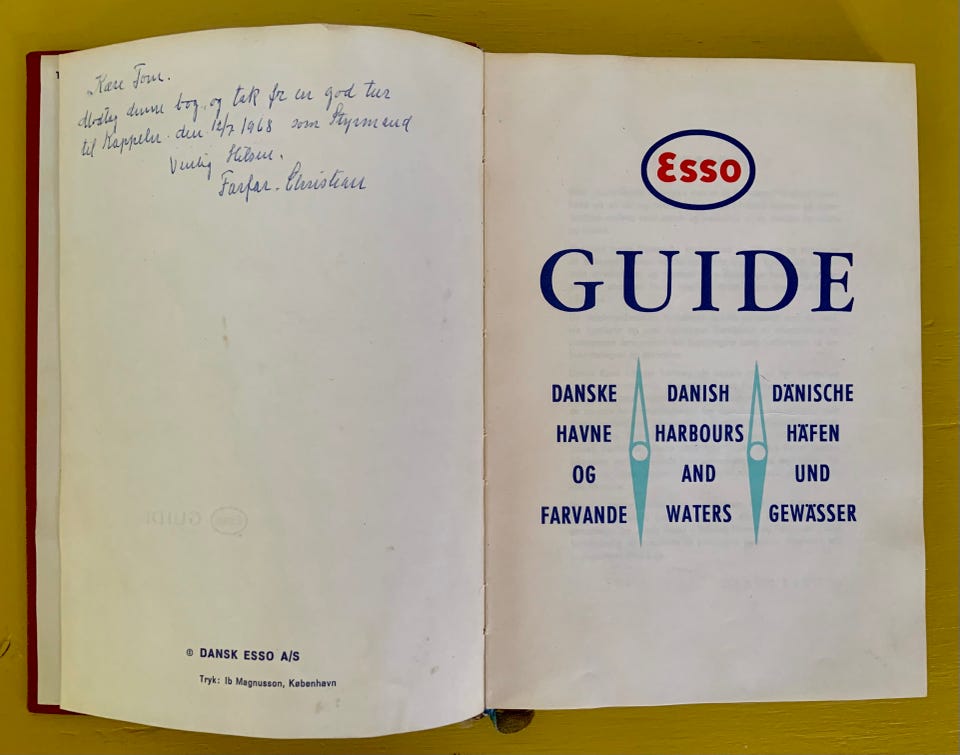 Kære Tom.
Modtag denne bog, og tak for en god tur
til Kappeln den 12/7 1968 som Styrmand
Venlig Hilsen.
Farfar. Christian
© DANSK ESSO A/S
Tryk: Ib Magnusson, København
Esso
GUIDE
DANSKE
HAVNE
OG
FARVANDE
DANISH
HARBOURS
AND
WATERS
DÄNISCHE
HÄFEN
UND
GEWÄSSER